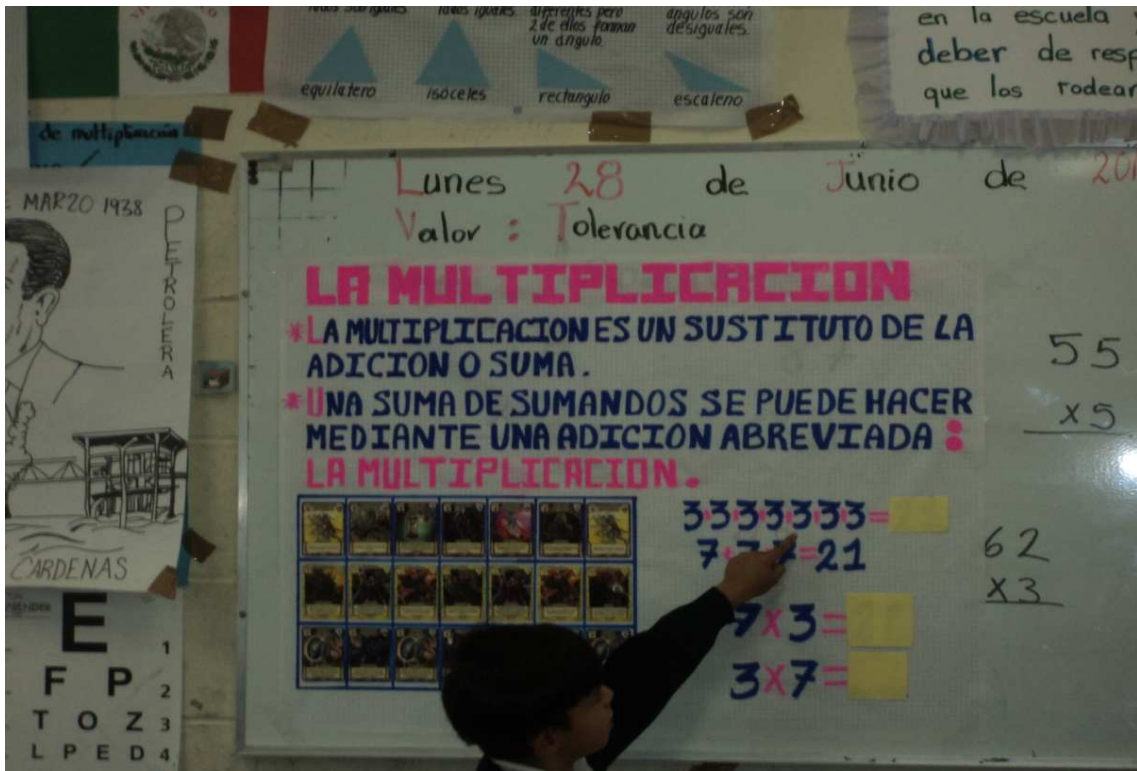 equilatero
isóceles
rectangulo
escaleno
diferentes pero
2 de ellos forman
un angulo.
angulos son
desiguales.
en la escuela
deber de resp
que los rodear
de multiplicación
MARZO 1938
PETROLERA
CARDENAS
E 1
F P 2
T O Z 3
L P E D 4
Lunes 28 de Junio de 201
Valor : Tolerancia
LA MULTIPLICACION
*LA MULTIPLICACION ES UN SUSTITUTO DE LA
ADICION O SUMA.
*UNA SUMA DE SUMANDOS SE PUEDE HACER
MEDIANTE UNA ADICION ABREVIADA :
LA MULTIPLICACION.
3+3+3+3+3+3+3=
7+7+7=21
7x3=
3x7=
55
x5
62
x3